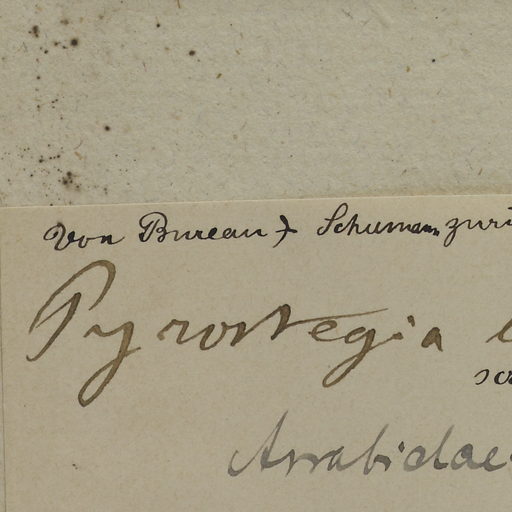 Von Bureau & Schumann zuri
Pyrostegia
Arrabidae